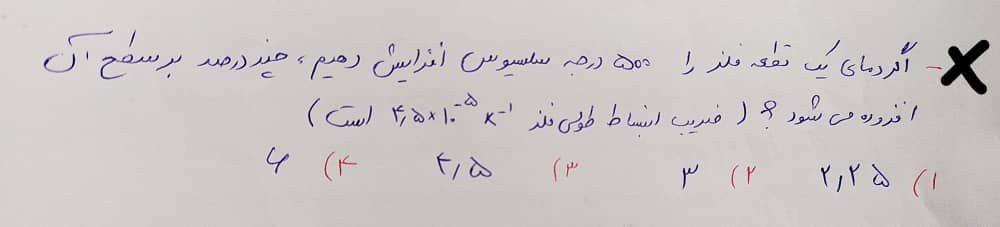 - اگر دمای یک قطعه فلز را ۵۰۰ درجه سلسیوس افزایش دهیم، چند درصد بر سطح آن
افزوده می شود؟ (ضریب انبساط طولی فلز ۴٫۵×۱۰⁻⁵ K⁻¹ است)
۱) ۲٫۲۵ ۲) ۳ ۳) ۴٫۵ ۴) ۶